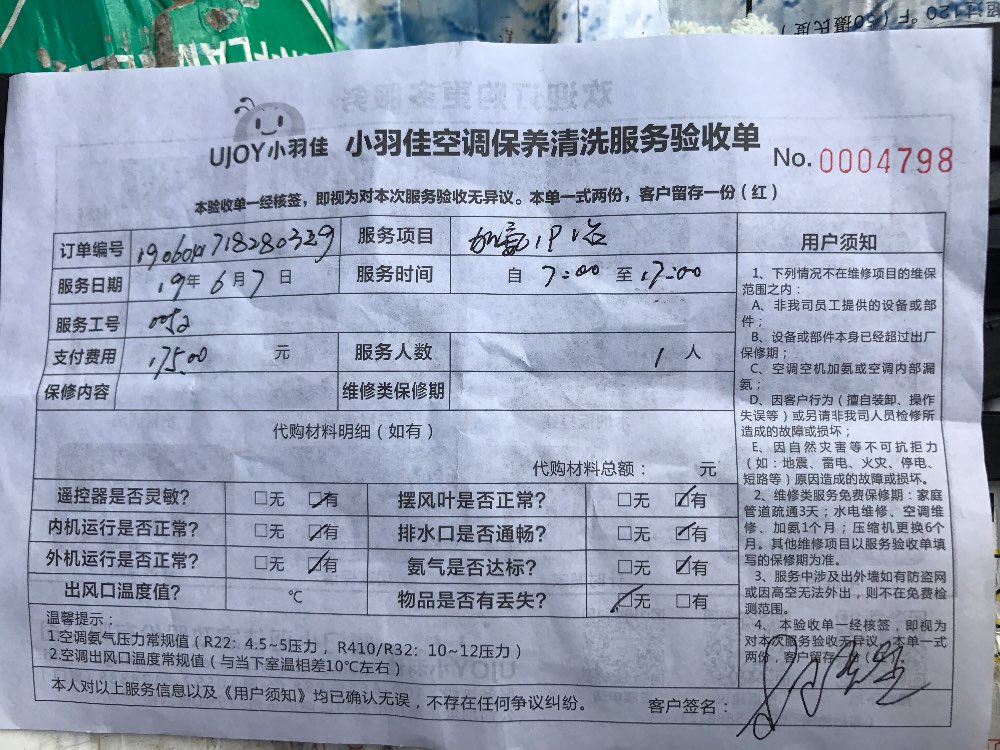 超过120 °F(50摄氏度)
UJOY小羽佳 小羽佳空调保养清洗服务验收单 No. 0004798
本验收单一经核签，即视为对本次服务验收无异议。本单一式两份，客户留存一份(红)
订单编号 服务项目
服务日期 19年 6月7日 服务时间 自 7:00 至 17:00
服务工号
支付费用 175.00 元 服务人数 1 人
保修内容 维修类保修期
代购材料明细(如有)
代购材料总额： 元
遥控器是否灵敏? □无 ☑有 摆风叶是否正常? □无 ☑有
内机运行是否正常? □无 ☑有 排水口是否通畅? □无 ☑有
外机运行是否正常? □无 ☑有 氨气是否达标? □无 ☑有
出风口温度值? ℃ 物品是否有丢失? ☑无 □有
温馨提示：
1.空调氨气压力常规值(R22: 4.5~5压力，R410/R32: 10~12压力)
2.空调出风口温度常规值(与当下室温相差10℃左右)
本人对以上服务信息以及《用户须知》均已确认无误，不存在任何争议纠纷。 客户签名：
用户须知
1、下列情况不在维修项目的维保
范围之内：
A、非我司员工提供的设备或部
件；
B、设备或部件本身已经超过出厂
保修期；
C、空调空机加氨或空调内部漏
氨；
D、因客户行为(擅自装卸、操作
失误等)或另请非我司人员检修所
造成的故障或损坏；
E、因自然灾害等不可抗拒力
(如：地震、雷电、火灾、停电、
短路等)原因造成的故障或损坏。
2、维修类服务免费保修期：家庭
管道疏通3天；水电维修、空调维
修、加氨1个月；压缩机更换6个
月。其他维修项目以服务验收单填
写的保修期为准。
3、服务中涉及出外墙如有防盗网
或因高空无法外出，则不在免费检
测范围。
4、本验收单一经核签，即视为
对本次服务验收无异议。本单一式
两份，客户留存